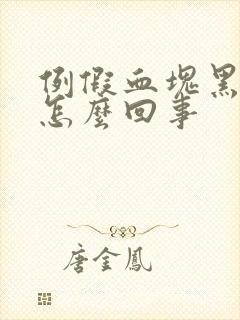 例假血塊黑
怎麼回事
唐金鳳